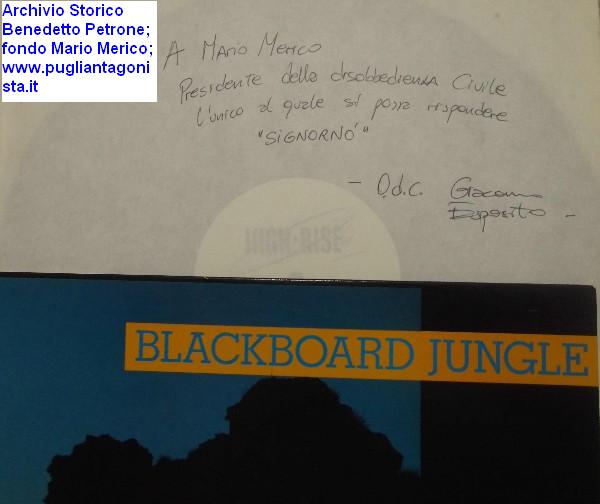 Archivio Storico
Benedetto Petrone;
fondo Mario Merico;
www.pugliantagoni
sta.it
A Mario Merico
Presidente della disobbedienza Civile
l'unico al quale si possa rispondere
"SIGNORNÒ"
- O.d.C. Giacomo
Esposito -
HIGH-RISE
BLACKBOARD JUNGLE